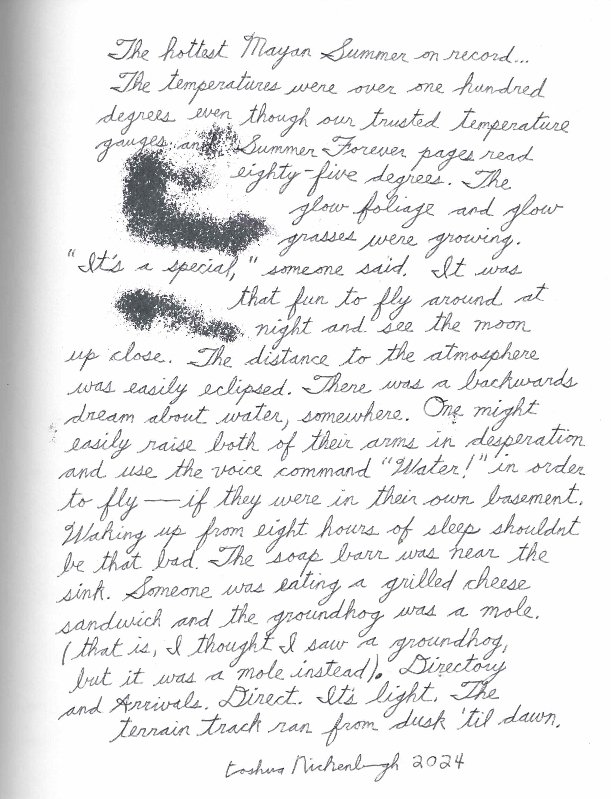 The hottest Mayan Summer on record...
The temperatures were over one hundred
degrees even though our trusted temperature
gauges and Summer Forever pages read
eighty-five degrees. The
glow foliage and glow
grasses were growing.
"It's a special," someone said. It was
that fun to fly around at
night and see the moon
up close. The distance to the atmosphere
was easily eclipsed. There was a backwards
dream about water, somewhere. One might
easily raise both of their arms in desperation
and use the voice command "Water!" in order
to fly — if they were in their own basement.
Waking up from eight hours of sleep shouldnt
be that bad. The soap barr was near the
sink. Someone was eating a grilled cheese
sandwich and the groundhog was a mole.
(that is, I thought I saw a groundhog,
but it was a mole instead). Directory
and Arrivals. Direct. It's light. The
terrain track ran from dusk 'til dawn.
2024